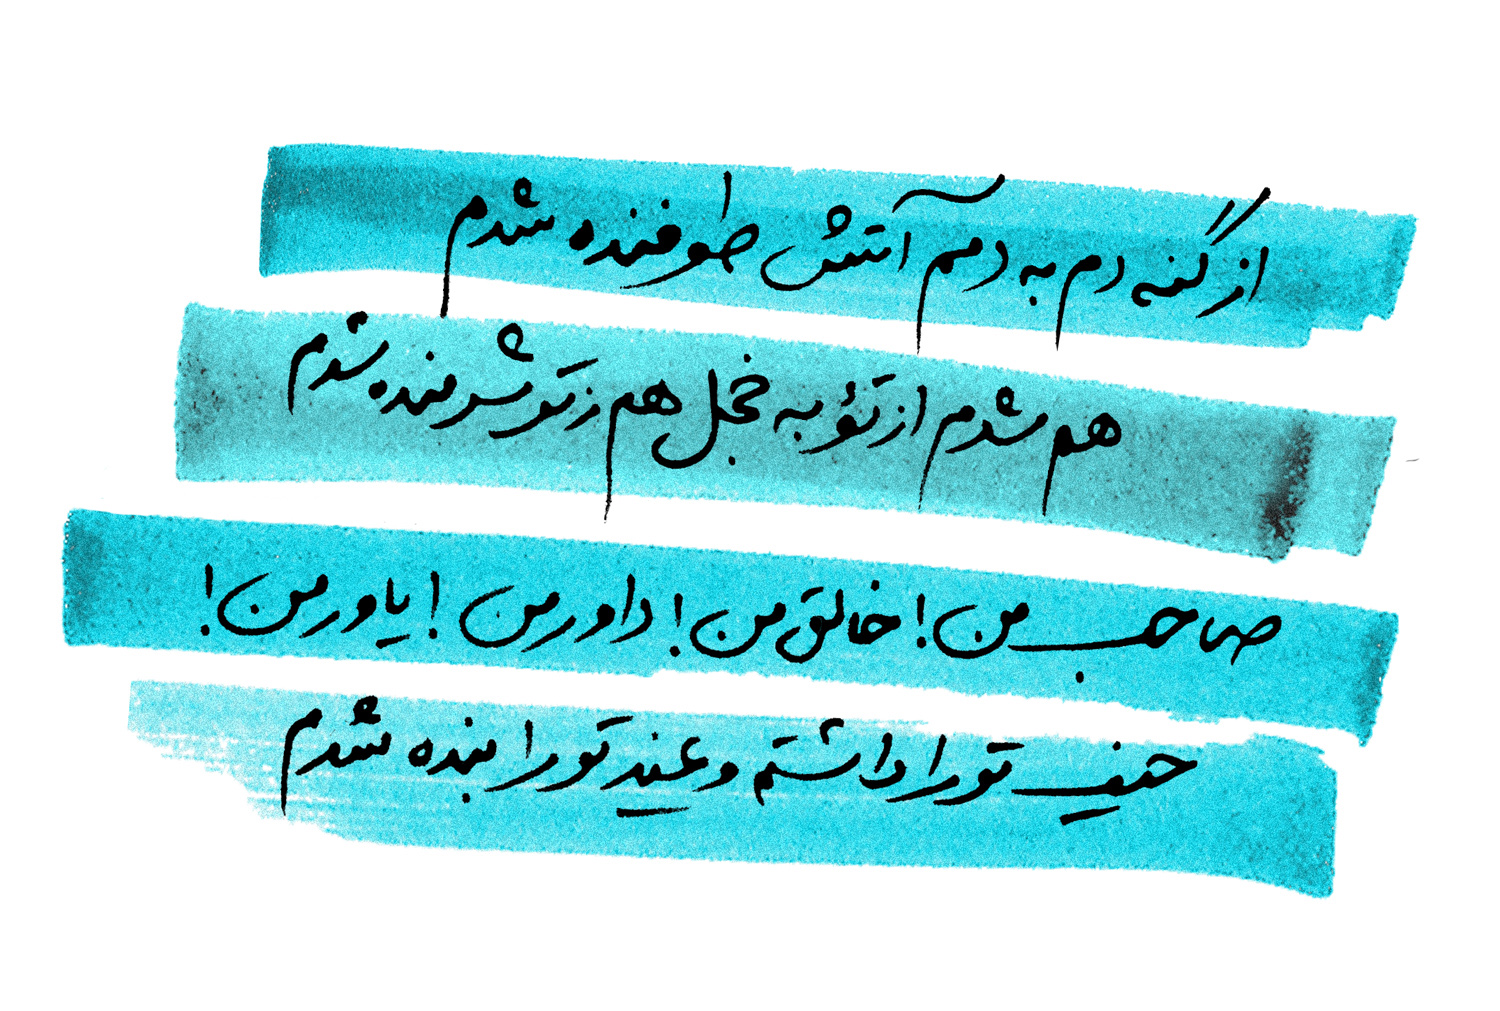 از گنه دم به دمم آتش طوفنده شدم
هم شدم از تؤ به خجل هم ز تو شرمنده شدم
صاحب من! خالق من! داور من! یاور من!
حیف تو را داشتم و غیر تو را بنده شدم